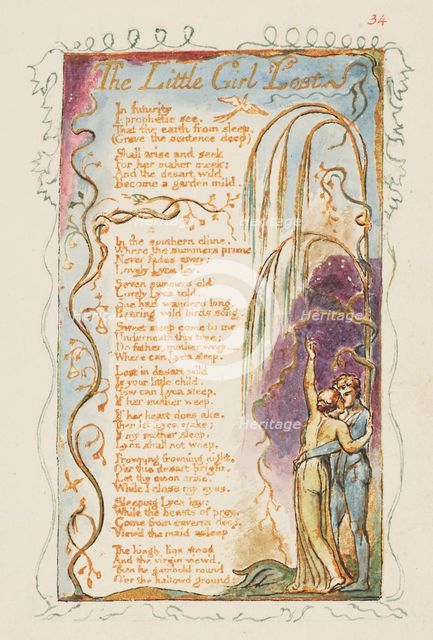 34
The Little Girl Lost
In futurity
I prophetic see,
That the earth from sleep,
(Grave the sentence deep)
Shall arise and seek
For her maker meek:
And the desart wild
Become a garden mild.
In the southern clime,
Where the summers prime
Never fades away;
Lovely Lyca lay.
Seven summers old
Lovely Lyca told,
She had wanderd long,
Hearing wild birds song.
Sweet sleep come to me
Underneath this tree;
Do father, mother weep,
Where can Lyca sleep.
Lost in desart wild
Is your little child.
How can Lyca sleep,
If her mother weep.
If her heart does ake,
Then let Lyca wake;
If my mother sleep,
Lyca shall not weep.
Frowning frowning night,
O'er this desart bright,
Let thy moon arise,
While I close my eyes.
Sleeping Lyca lay;
While the beasts of prey,
Come from caverns deep,
View'd the maid asleep
The kingly lion stood
And the virgin view'd,
Then he gambold round
O'er the hallowd ground;
Heritage
Heritage
Heritage
Heritage
Heritage